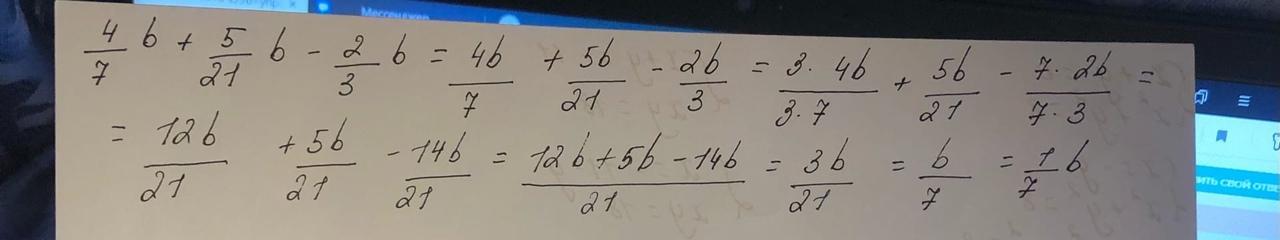 Мессенджер
4/7 b + 5/21 b - 2/3 b = 4b/7 + 5b/21 - 2b/3 = 3·4b/3·7 + 5b/21 - 7·2b/7·3 =
= 12b/21 + 5b/21 - 14b/21 = 12b+5b-14b/21 = 3b/21 = b/7 = 1/7 b
ИТЬ СВОЙ ОТВЕ